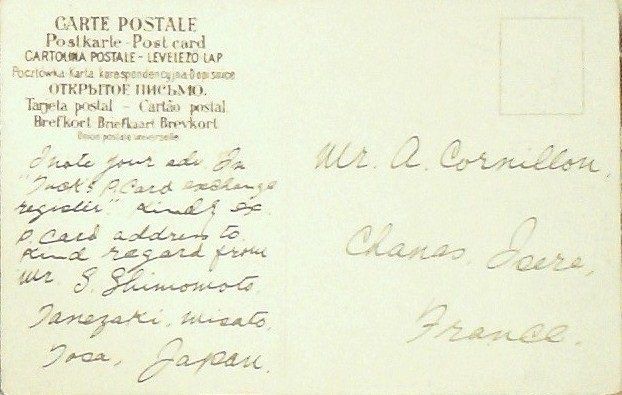 CARTE POSTALE
Postkarte - Post card
CARTOLINA POSTALE - LEVELEZO LAP
Pocztówka-Karta korespondencyjna-Dopisnice
ОТКРЫТОЕ ПИСЬМО.
Tarjeta postal - Cartão postal
Brefkort Briefkaart Brevkort
Union postale universelle.
I note your adv. In
"Tuck's P.Card exchange
register". Kindly ex.
P. Card address to.
Kind regard from
Mr. S. Shimomoto.
Tanezaki. Misato.
Tosa, Japan.
Mr. A. Cornillon,
Chanas. Isere,
France.